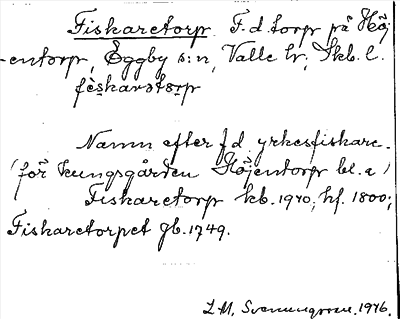 Fiskaretorp. F. d. torp på Höj
-entorp, Eggby s:n, Valle hr; Skb. l.
fèskarətɔrp
Namn efter f.d. yrkesfiskare.
(för kungsgården Höjentorp bl. a)
Fiskaretorp kb. 1940; hf. 1800;
Fiskaretorpet gb. 1749.
L. M. Svenungsson. 1946.